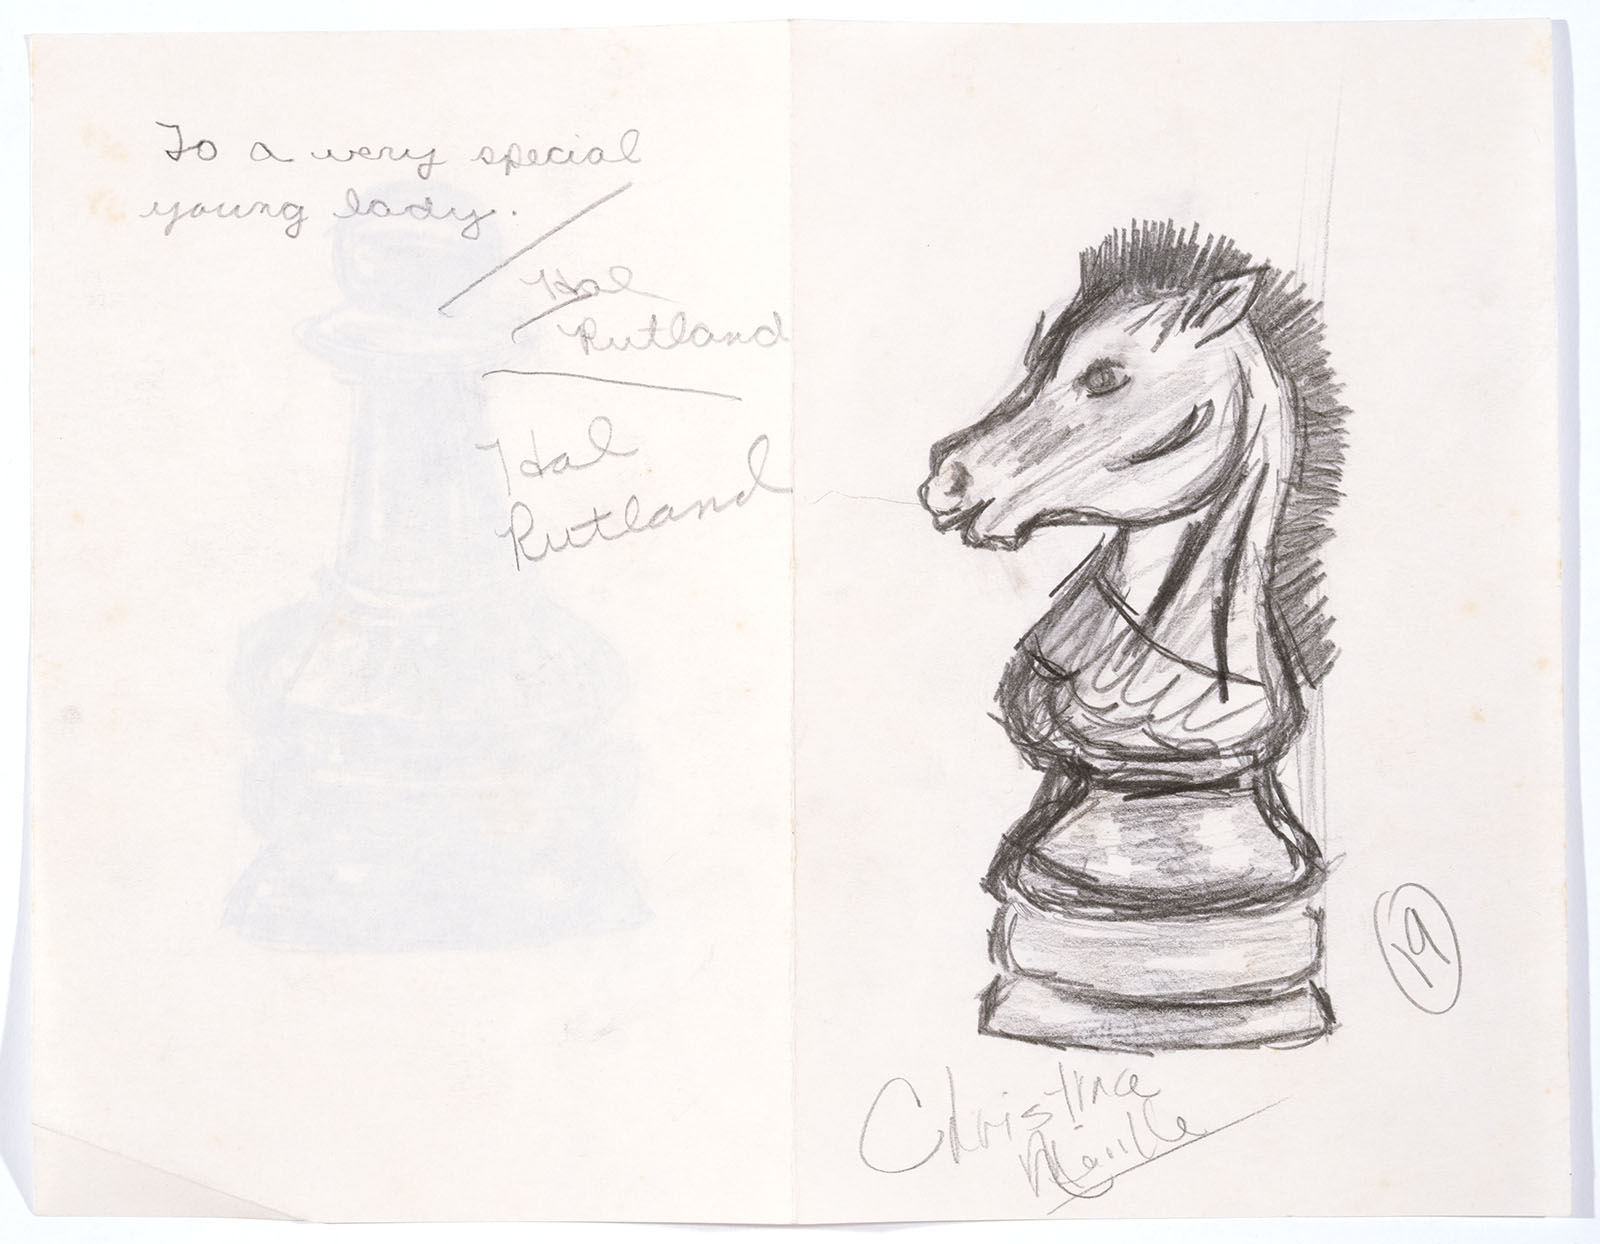 To a very special
young lady.
Hal
Rutland
Hal
Rutland
19
Christine